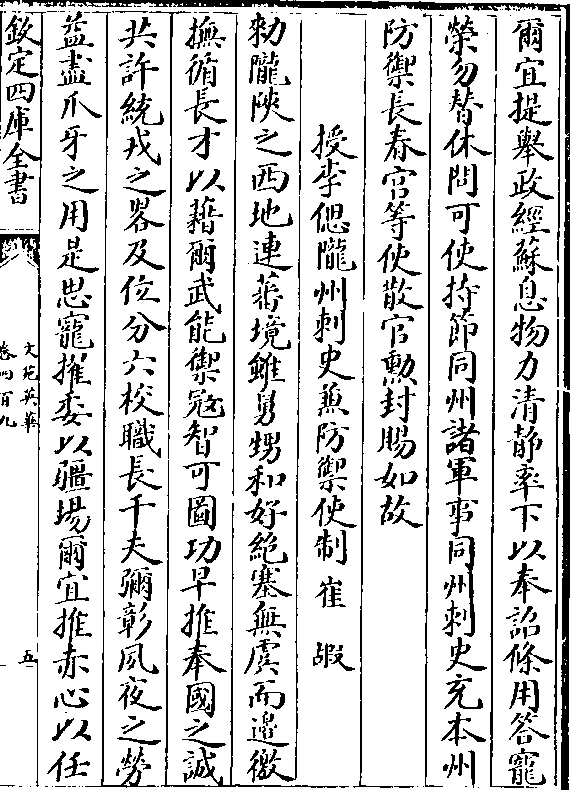 爾宜提舉政經蘇息物力清静率下以奉詔條用答寵
榮勿替休問可使持節同州諸軍事同州刺史充本州
防禦長春宫等使散官勲封賜如故
授李偲隴州刺史兼防禦使制 崔嘏
勅隴陜之西地連蕃境雖舅甥和好絶塞無虞而邉徼
撫循長才以藉爾武能禦冦智可圖功早推奉國之誠
共許統戎之畧及位分六校職長千夫彌彰夙夜之勞
益盡爪牙之用是思寵擢委以疆場爾宜推赤心以任
欽定四庫全書
文苑英華
卷四百九
五